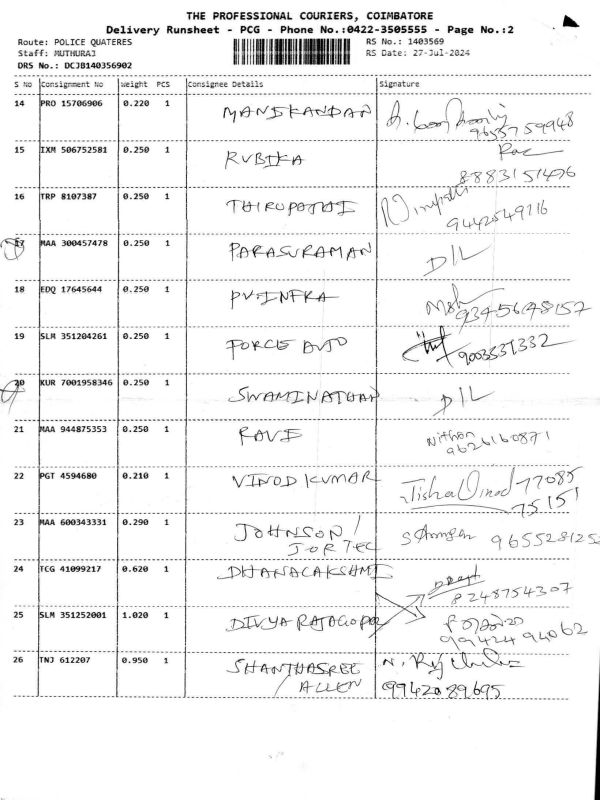 THE PROFESSIONAL COURIERS, COIMBATORE
Delivery Runsheet - PCG - Phone No.:0422-3505555 - Page No.:2
Route: POLICE QUATERES RS No.: 1403569
Staff: MUTHURAJ RS Date: 27-Jul-2024
DRS No.: DCJB140356902
S No Consignment No Weight PCS Consignee Details Signature
14 PRO 15706906 0.220 1 MANIKANDAN
9655759948
15 IXM 506752581 0.250 1 RUBIKA
8883151476
16 TRP 8107387 0.250 1 THIRUPATHI
9442549116
17 MAA 300457478 0.250 1 PARASURAMAN D/L
18 EDQ 17645644 0.250 1 PV.INFRA
9345648157
19 SLM 351204261 0.250 1 FORCE AUTO
9003531332
20 KUR 7001958346 0.250 1 SWAMINATHAN D/L
21 MAA 944875353 0.250 1 RAVI Nithan
9626160871
22 PGT 4594680 0.210 1 VINOD KUMAR Jisha Vinod 77085
75151
23 MAA 600343331 0.290 1 JOHNSON /
JORTEC 965528125
24 TCG 41099217 0.620 1 DHANALAKSHMI
8248754307
25 SLM 351252001 1.020 1 DIVYA RAJAGOPAL
9942494062
26 TNJ 612207 0.950 1 SHANTHASREE
/ALLEN 9942089695